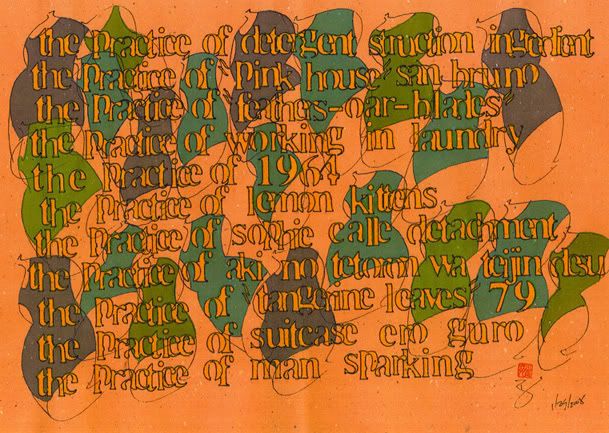 the Practice of detergent struction ingredient
the Practice of Pink house san bruno
the Practice of "feathers-oar-blades"
the Practice of working in laundry
the Practice of 1964
the Practice of lemon kittens
the Practice of sophie calle detachment
the Practice of aki no tetoron wa teijin desu
the Practice of "tangerine leaves" 79
the Practice of suitcase ero guro
the Practice of man sparking